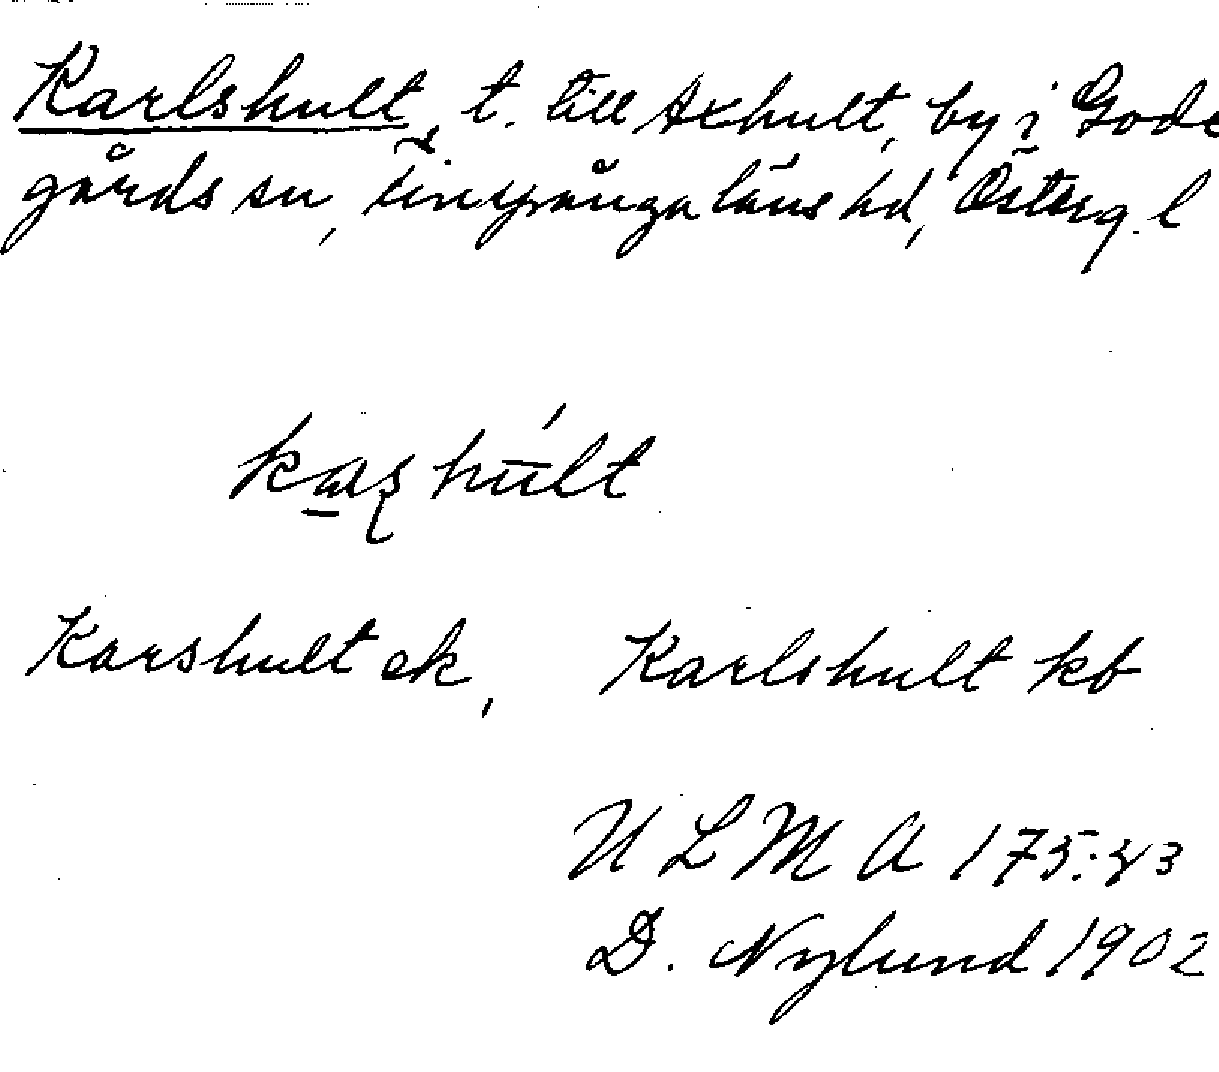 Karlshult, t. till Axhult, by i Gode
gårds sn, Finspånga läns hd, Österg. l
Karshult ek, Karlshult kb
ULMA 175:83
D. Nylund 1902